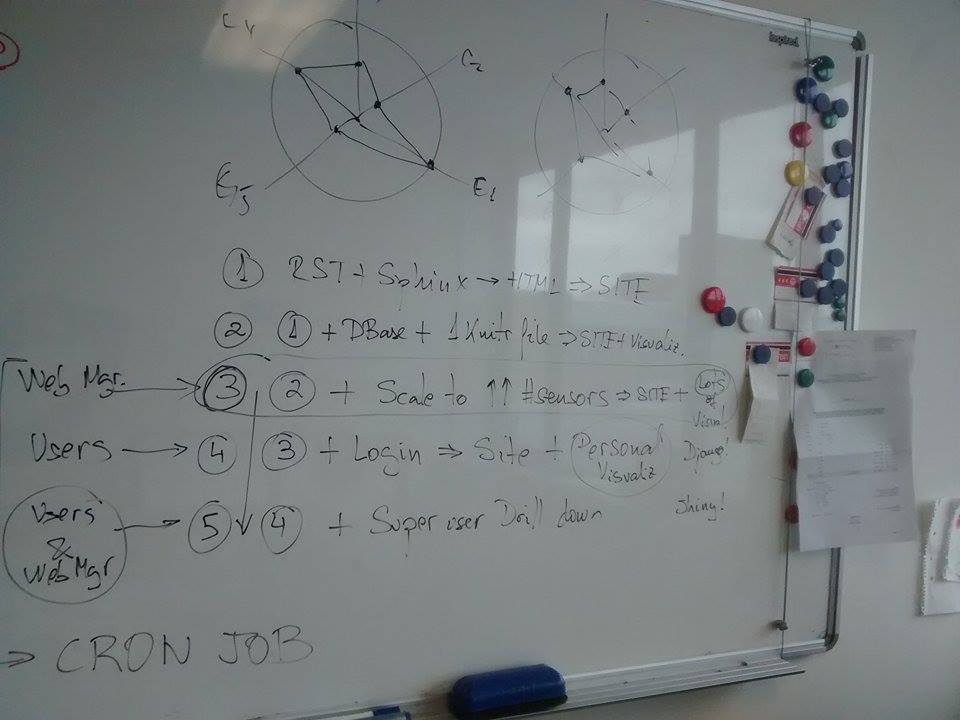 inspired
C4
C2
E5
E1
① RST + Sphinx → HTML ⇒ SITE
② ① + DBase + 1 Knitr file ⇒ SITE + Visualiz.
Web Mgr. → ③ ② + Scale to ↑↑ #sensors ⇒ SITE + Lots of Visual!
Users → ④ ③ + Login ⇒ Site + Personal Visualiz Django!
Users & Web Mgr → ⑤ ④ + Super user Drill down Shiny!
→ CRON JOB